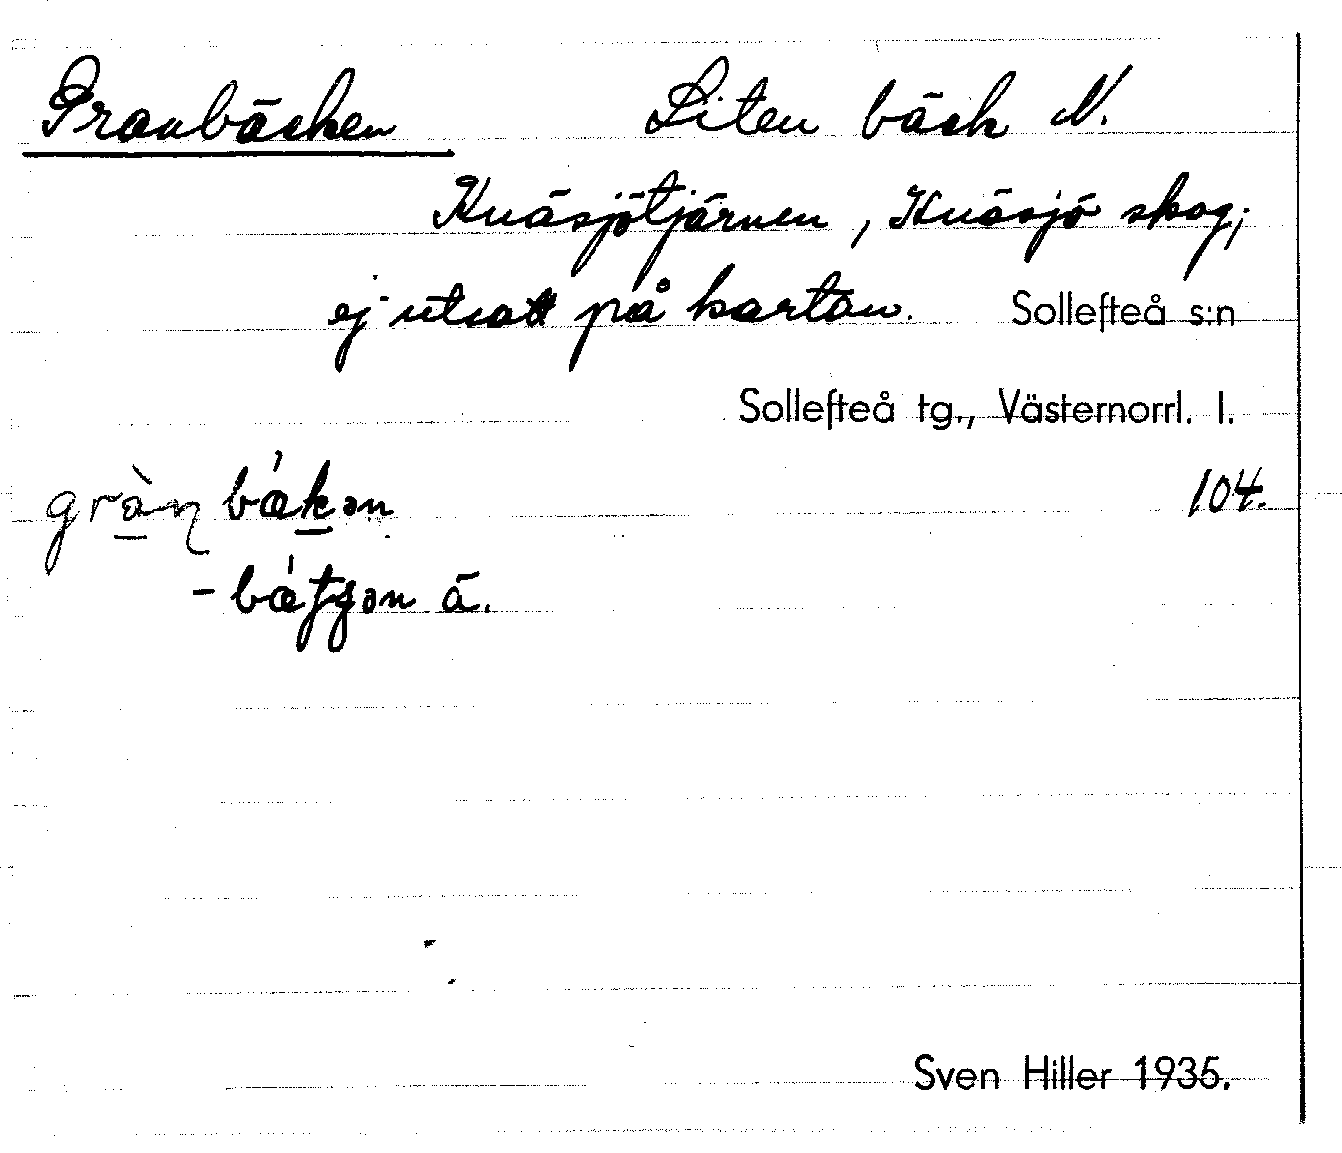 Granbäcken Liten bäck N.
Knäsjötjärnen, Knäsjö skog;
ej utsatt på kartan. Sollefteå s:n
Sollefteå tg., Västernorrl. l.
gràn bǽkən 104.
- ä.
Sven Hiller 1935.